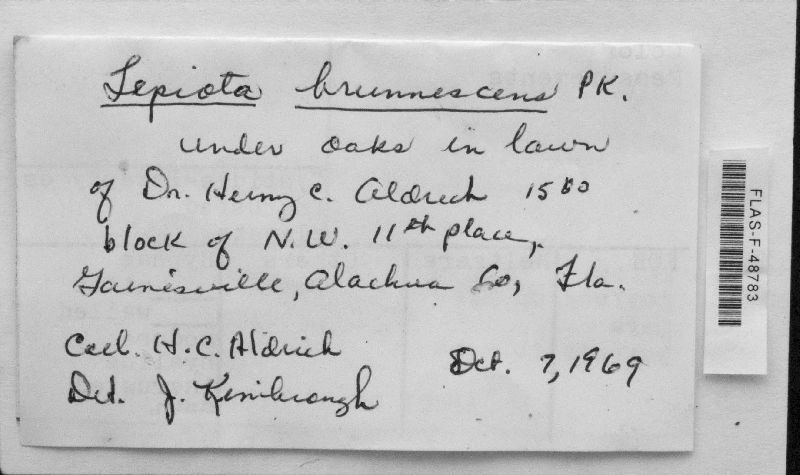 Lepiota brunnescens PK.
under oaks in lawn
of Dr. Henry C. Aldrich 1500
block of N.W. 11th place,
Gainesville, Alachua Co, Fla.
Coll. H.C. Aldrich
Oct. 7, 1969
Det. J. Kimbrough
FLAS-F-48783